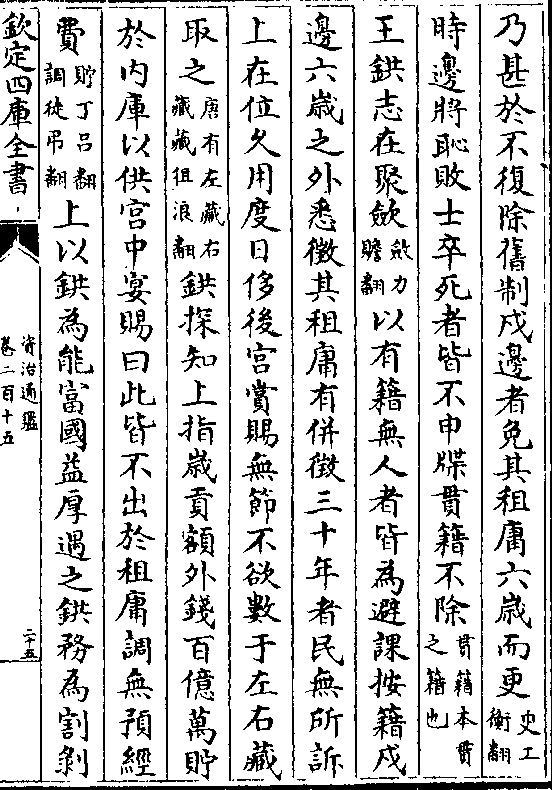 乃甚於不復除舊制戍邊者免其租庸六歲而更史工衡翻
時邊將恥敗士卒死者皆不申牒貫籍不除貫籍本貫之籍也
王鉷志在聚斂斂力贍翻以有籍無人者皆為避課按籍戍
邊六歲之外悉徵其租庸有併徵三十年者民無所訴
上在位久用度日侈後宮賞賜無節不欲數于左右藏
取之唐有左藏右藏藏徂浪翻鉷探知上指歲貢額外錢百億萬貯
於內庫以供宮中宴賜曰此皆不出於租庸調無預經
費貯丁呂翻調徒弔翻上以鉷為能富國益厚遇之鉷務為割剝
欽定四庫全書
資治通鑑
卷二百十五
二十五